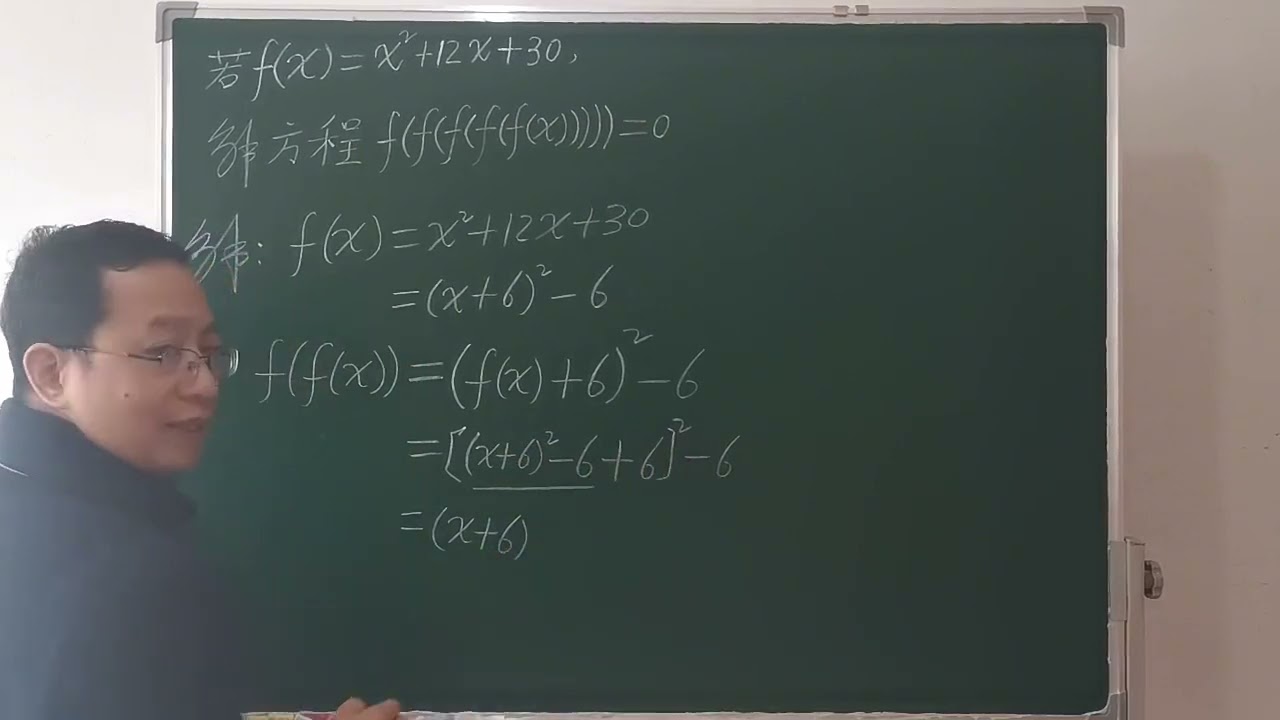 若f(x)=x²+12x+30,
解方程 f(f(f(f(f(x)))))=0
解: f(x)=x²+12x+30
=(x+6)²-6
f(f(x))=(f(x)+6)²-6
=[(x+6)²-6+6]²-6
=(x+6)